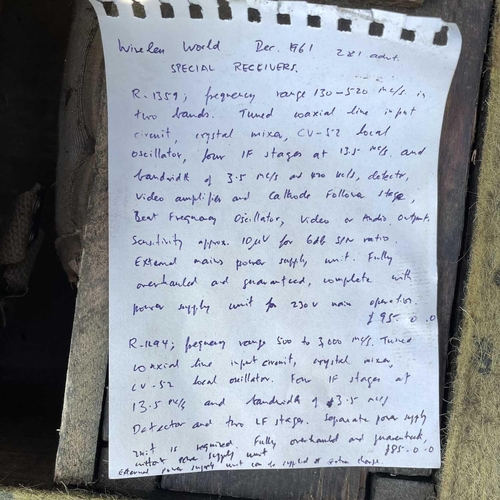 Wireless World Dec. 1961 221 advt.
SPECIAL RECEIVERS.
R-1359; frequency range 130-520 Mc/s in
two bands. Tuned coaxial line input
circuit, crystal mixer, CV-52 local
oscillator, four IF stages at 13.5 Mc/s. and
bandwidth of 3.5 Mc/s or 400 kc/s, detector,
Video amplifier and Cathode Follower stage,
Beat Frequency Oscillator, Video or Audio Output.
Sensitivity approx. 10μV for 6dB S/N ratio.
External mains power supply unit. Fully
overhauled and guaranteed, complete with
power supply unit for 230V main operation.
£95. 0. 0
R-1294; frequency range 500 to 3,000 Mc/s. Tuned
coaxial line input circuit, crystal mixer,
CV-52 local oscillator. Four IF stages at
13.5 Mc/s and bandwidth of 3.5 Mc/s
Detector and two LF stages. Separate power supply
unit is required. Fully overhauled and guaranteed,
without power supply unit £85. 0. 0
External power supply unit can be supplied at extra charge.